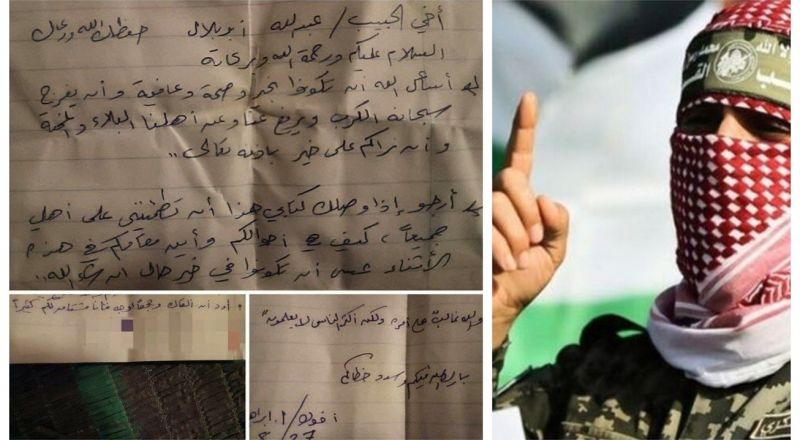 أخي الحبيب / عبدالله أبو بلال حفظك الله ورعاك
السلام عليكم ورحمة الله وبركاته
أسأل الله أن تكونوا بخير وصحة وعافية وأن يفرج
سبحانه الكرب ويرفع عنا وعن أهلنا البلاء والمحنة
وأن نراكم على خير بإذنه تعالى..
أرجو إذا وصلك كتابي هذا أن تطمئنني على أهلي
جميعاً، كيف هي أحوالكم وأين مقامكم في هذه
الأثناء عسى أن تكونوا في خير حال إن شاء الله..
أود أن ألقاك وجهاً لوجه فأنا مشتاق لكم كثيراً
والله غالب على أمره ولكن أكثر الناس لا يعلمون"
بارك الله فيكم وسدد خطاكم
أخوك / ا. ابراه
27